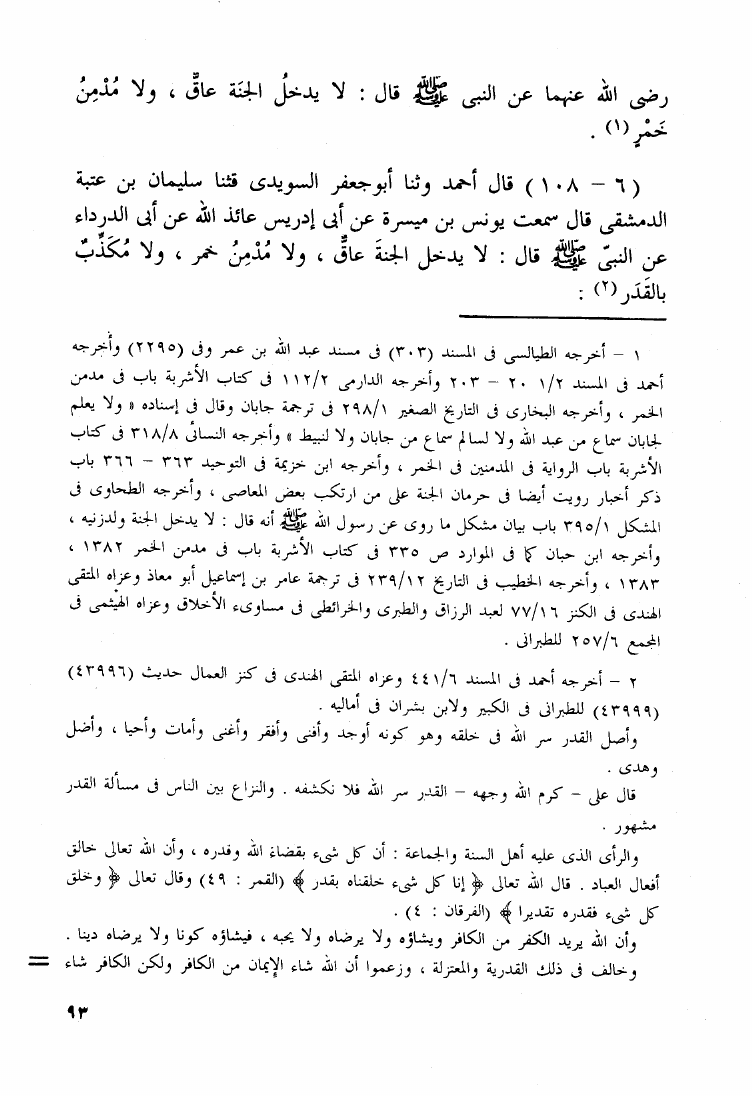 رضى الله عنهما عن النبى ﷺ قال : لا يدخلُ الجنَة عاقٌّ ، ولا مُدْمِنُ
خَمْرٍ (١) .
(٦ – ١٠٨) قال أحمد وثنا أبوجعفر السويدى قثنا سليمان بن عتبة
الدمشقى قال سمعت يونس بن ميسرة عن أبى إدريس عائذ الله عن أبى الدرداء
عن النبىّ ﷺ قال : لا يدخل الجنةَ عاقٌّ ، ولا مُدْمِنُ خمر ، ولا مُكَذِّبٌ
بالقَدَر (٢) :
١ – أخرجه الطيالسى فى المسند (٣٠٣) فى مسند عبد الله بن عمر وفى (٢٢٩٥) وأخرجه
أحمد فى المسند ١/٢ ٢٠ – ٢٠٣ وأخرجه الدارمى ١١٢/٢ فى كتاب الأشربة باب فى مدمن
الخمر ، وأخرجه البخارى فى التاريخ الصغير ٢٩٨/١ فى ترجمة جابان وقال فى إسناده « ولا يعلم
لجابان سماع من عبد الله ولا لسالم سماع من جابان ولا لنبيط » وأخرجه النسائى ٣١٨/٨ فى كتاب
الأشربة باب الرواية فى المدمنين فى الخمر ، وأخرجه ابن خزيمة فى التوحيد ٣٦٣ – ٣٦٦ باب
ذكر أخبار رويت أيضا فى حرمان الجنة على من ارتكب بعض المعاصى ، وأخرجه الطحاوى فى
المشكل ٣٩٥/١ باب بيان مشكل ما روى عن رسول الله ﷺ أنه قال : لا يدخل الجنة ولدزنيه ،
وأخرجه ابن حبان كما فى الموارد ص ٣٣٥ فى كتاب الأشربة باب فى مدمن الخمر ١٣٨٢ ،
١٣٨٣ ، وأخرجه الخطيب فى التاريخ ٢٣٩/١٢ فى ترجمة عامر بن إسماعيل أبو معاذ وعزاه المتقى
الهندى فى الكنز ٧٧/١٦ لعبد الرزاق والطبرى والخرائطى فى مساوىء الأخلاق وعزاه الهيْثمى فى
المجمع ٢٥٧/٦ للطبرانى .
٢ – أخرجه أحمد فى المسند ٤٤١/٦ وعزاه المتقى الهندى فى كنز العمال حديث (٤٣٩٩٦)
(٤٣٩٩٩) للطبرانى فى الكبير ولابن بشران فى أماليه .
وأصل القدر سر الله فى خلقه وهو كونه أوجد وأفنى وأفقر وأغنى وأمات وأحيا ، وأضل
وهدى .
قال على – كرم الله وجهه – القدر سر الله فلا نكشفه . والنزاع بين الناس فى مسألة القدر
مشهور .
والرأى الذى عليه أهل السنة والجماعة : أن كل شىء بقضاء الله وقدره ، وأن الله تعالى خالق
أفعال العباد . قال الله تعالى ﴿ إنا كل شىء خلقناه بقدر ﴾ (القمر : ٤٩) وقال تعالى ﴿ وخلق
كل شىء فقدره تقديرا ﴾ (الفرقان : ٤) .
وأن الله يريد الكفر من الكافر ويشاؤه ولا يرضاه ولا يحبه ، فيشاؤه كونا ولا يرضاه دينا .
وخالف فى ذلك القدرية والمعتزلة ، وزعموا أن الله شاء الإيمان من الكافر ولكن الكافر شاء =
٩٣